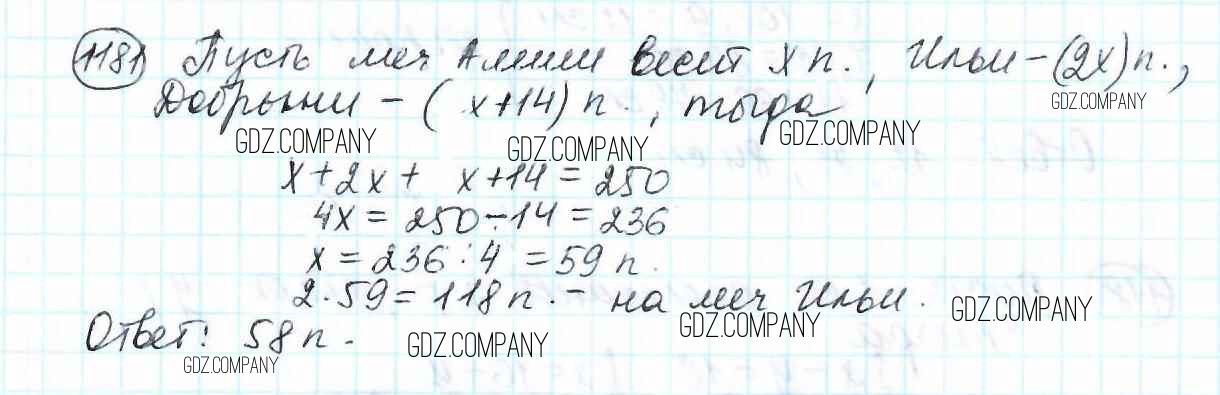 1181 Пусть меч Алеши весит x п., Ильи - (2x) п.,
Добрыни - ( x+14) п., тогда
GDZ.COMPANY GDZ.COMPANY GDZ.COMPANY
x+2x+ x+14 = 250
4x = 250-14 = 236
x = 236 : 4 = 59 п.
2·59 = 118 п. - на меч Ильи. GDZ.COMPANY
GDZ.COMPANY
Ответ: 58 п. GDZ.COMPANY
GDZ.COMPANY